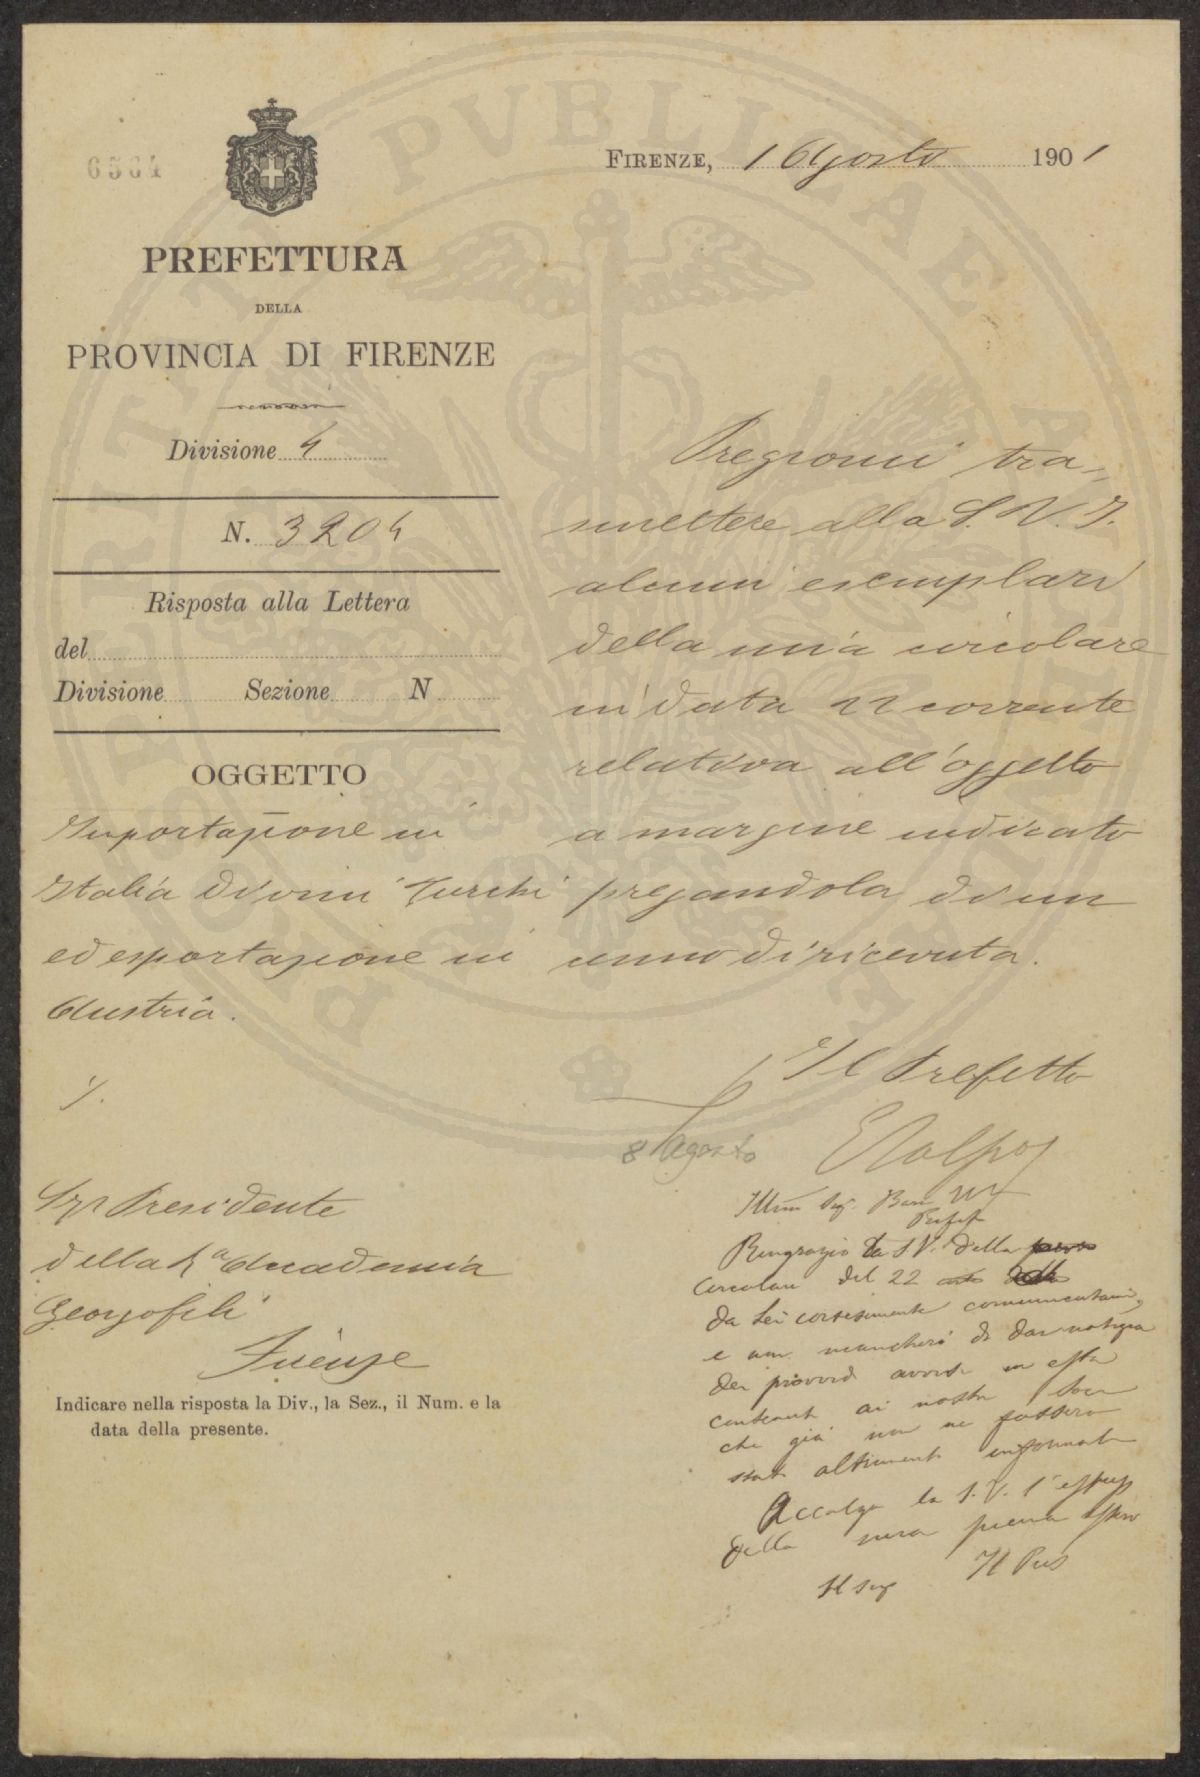 6564
FIRENZE, 1 Agosto 1901
PREFETTURA
DELLA
PROVINCIA DI FIRENZE
Divisione 4
N. 3204
Risposta alla Lettera
del
Divisione Sezione N
OGGETTO
Importazione in
Italia di vini Turchi
ed esportazione in
Austria.
Pregiomi tra-
smettere alla S. V. I.
alcuni esemplari
della mia circolare
in data 22 corrente
relativa all'oggetto
a margine indicato
pregandola di un
cenno di ricevuta.
Il Prefetto
Sigr Presidente
della Ra Accademia
Georgofili
Firenze
Indicare nella risposta la Div., la Sez., il Num. e la
data della presente.
8 Agosto
Illmo Sig.
Prefet
Ringrazio la S V. della
Circolare del 22
da Lei cortesemente comunicatami,
e non mancherò di dar notizia
dei
ai nostri Soci
che già non ne fossero
stati altrimenti informati
Accolga la S. V. l'
della mia piena
Il Seg Il Pres